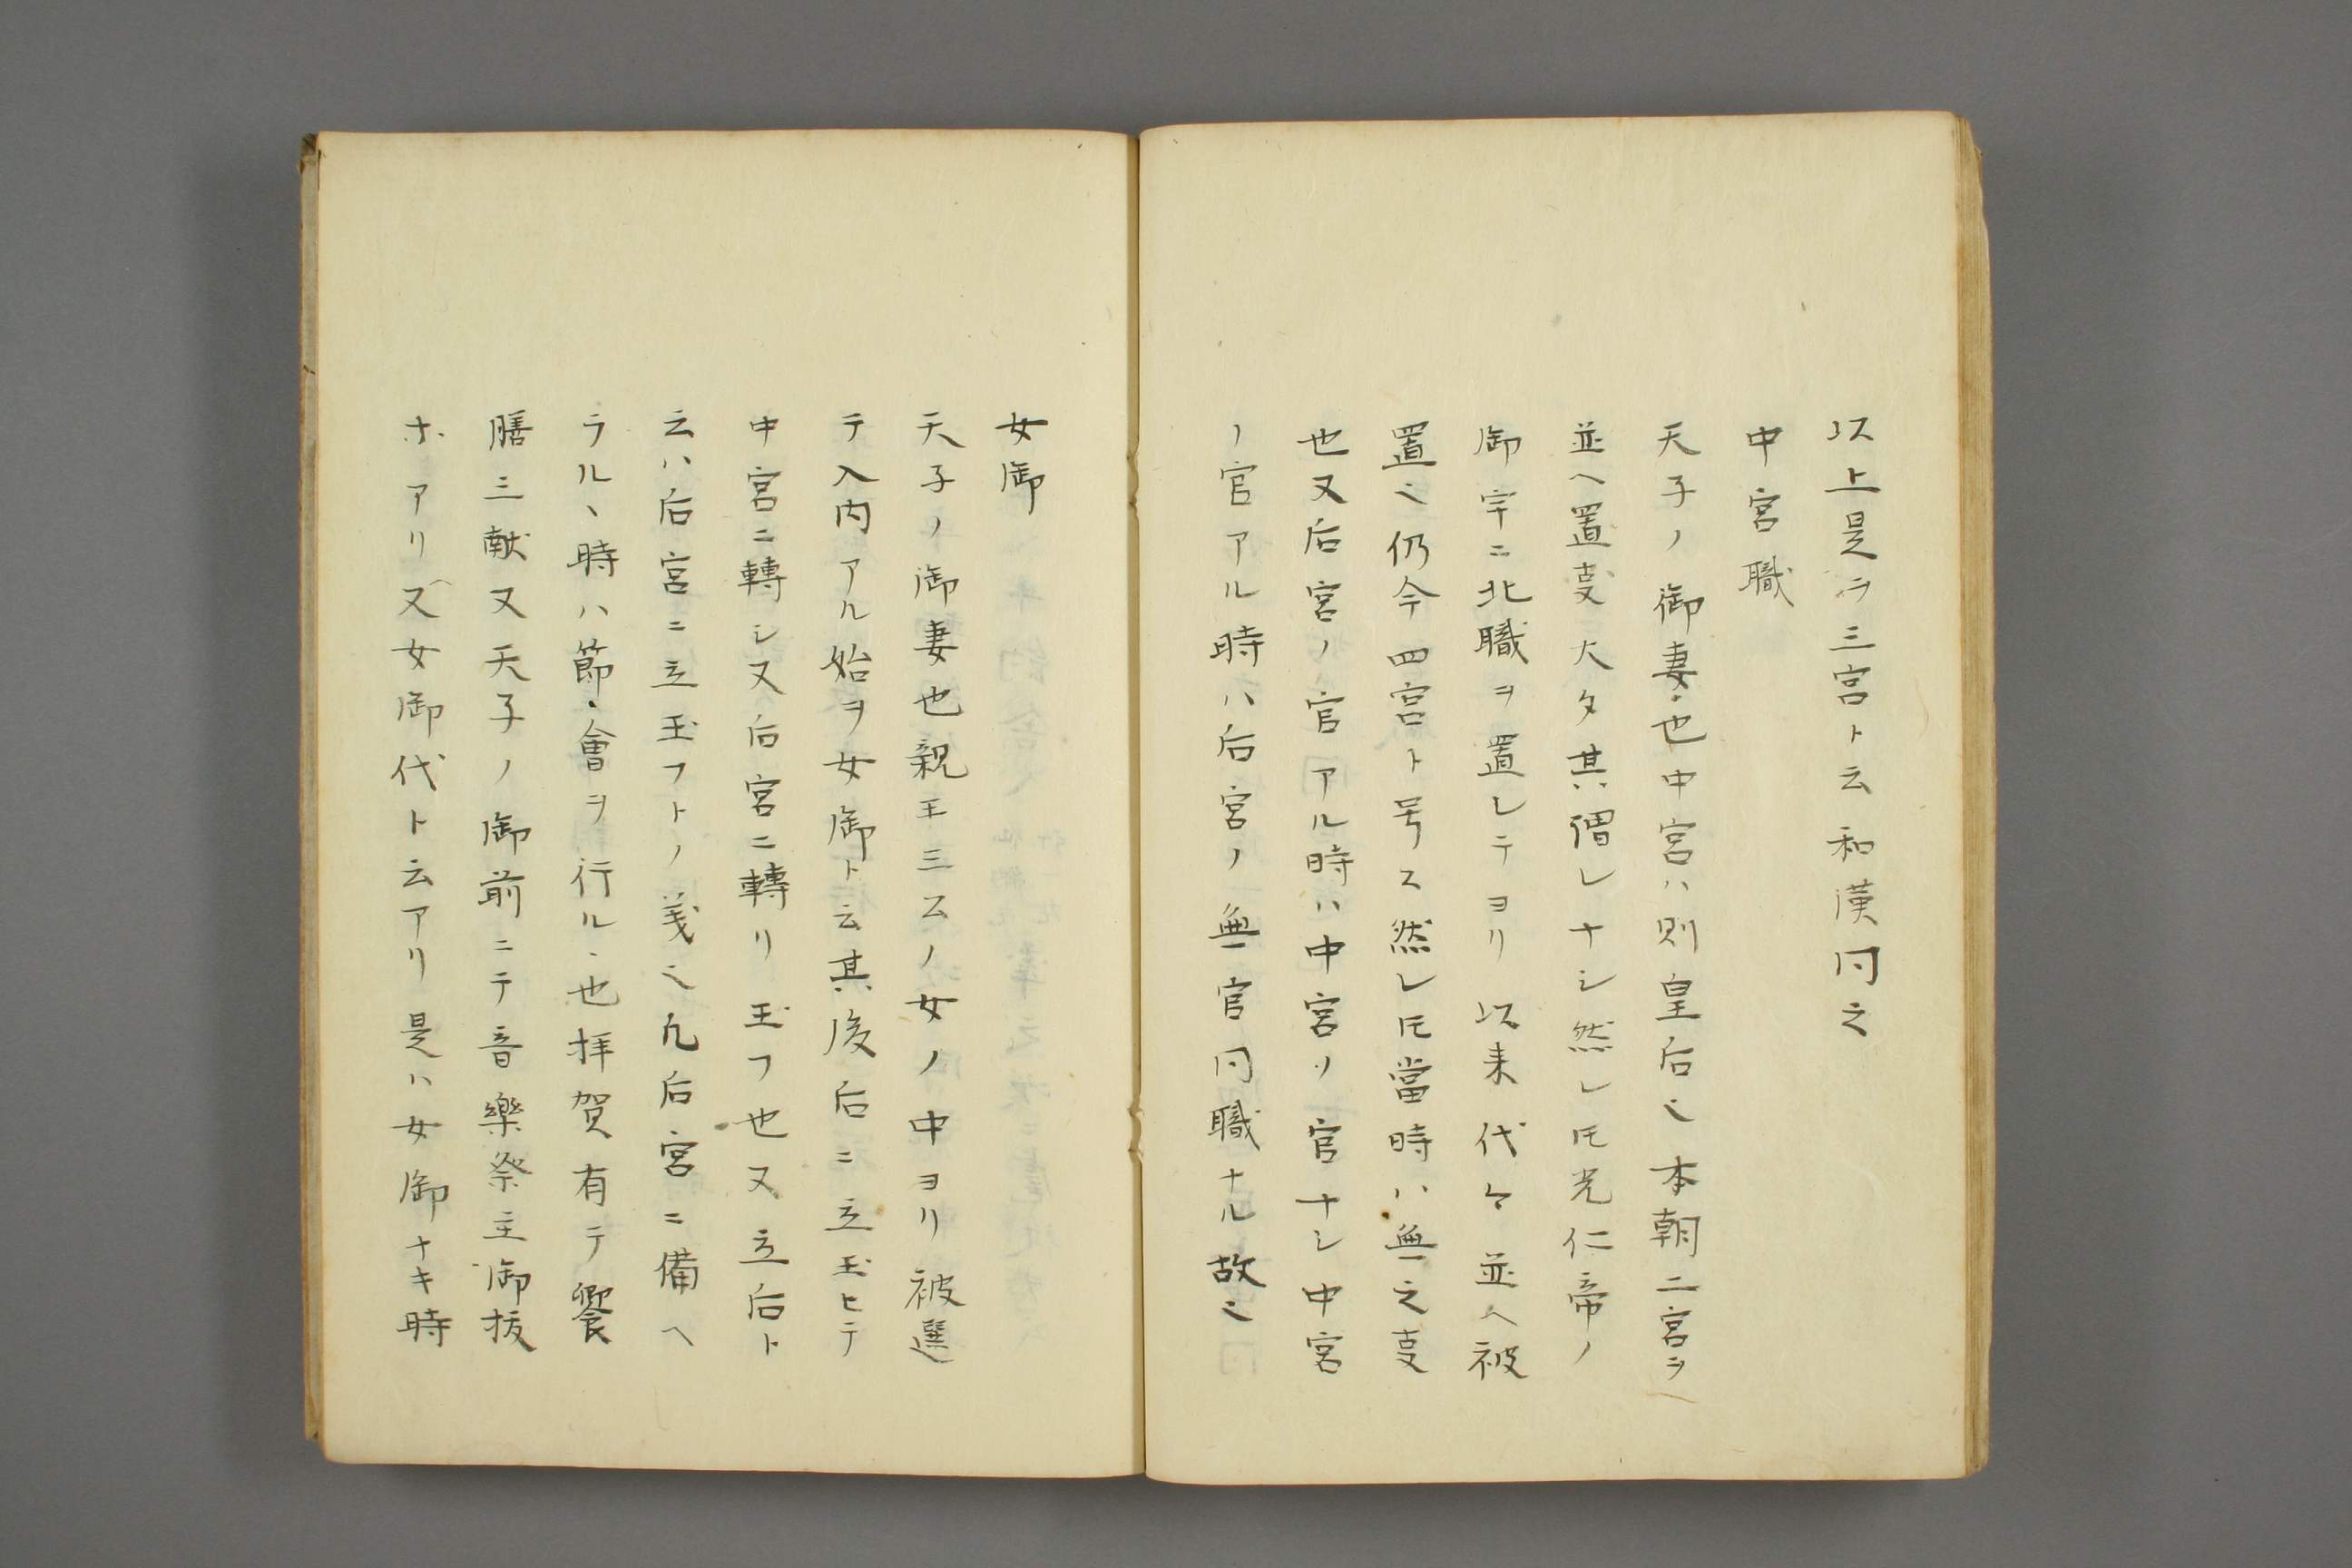 以上是ヲ三宮ト云和漢同之
中宮職
天子ノ御妻也中宮ハ則皇后〻本朝二宮ヲ
並ヘ置叓大タ其僭レナシ然レ𪜈光仁帝ノ
御宇ニ北職ヲ置レテヨリ以来代々並ヘ被
置〻仍今四宮ト号ス然レ𪜈當時ハ無之叓
也又后宮ノ官アル時ハ中宮ノ官ナシ中宮
ノ官アル時ハ后宮ノ無官同職ナル故〻
女御
天子ノ御妻也親王三公ノ女ノ中ヨリ被選
テ入内アル始ヲ女御ト云其後后ニ立玉ヒテ
中宮ニ轉シ又后宮ニ轉リ玉フ也又立后ト
云ハ后宮ニ立玉フトノ義〻凡后宮ニ備ヘ
ラルヽ時ハ節會ヲ行ルヽ也拝賀有テ饗
膳三献又天子ノ御前ニテ音樂祭主御拔
ホアリ又女御代ト云アリ是ハ女御ナキ時